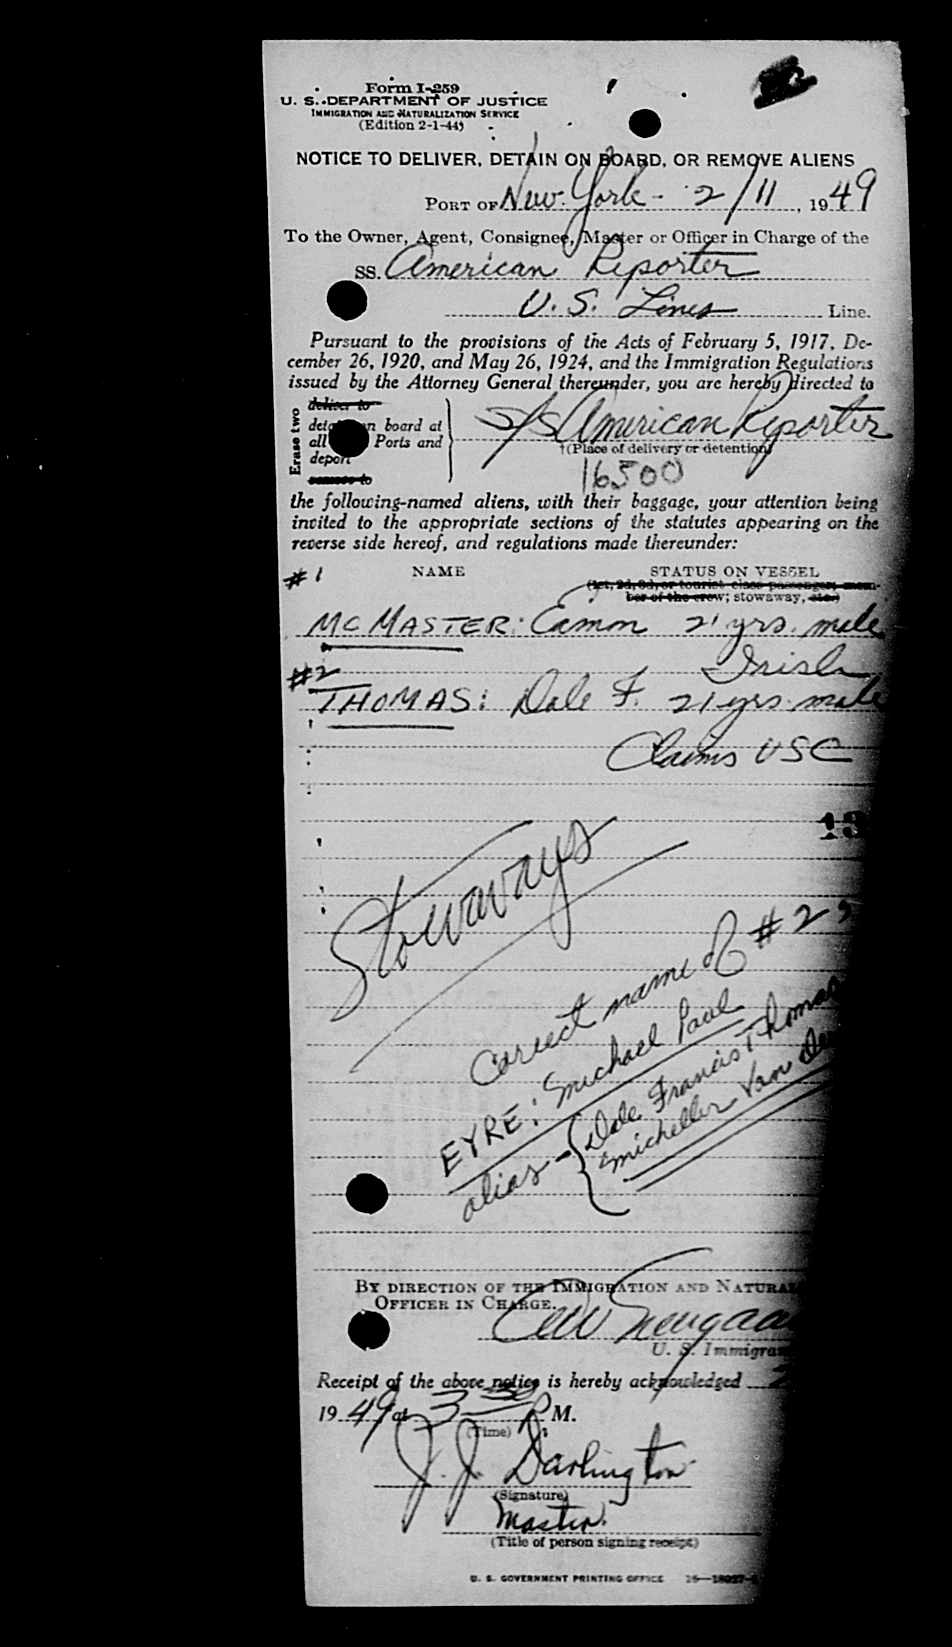 Form I-259
U. S. DEPARTMENT OF JUSTICE
IMMIGRATION AND NATURALIZATION SERVICE
(Edition 2-1-44)
NOTICE TO DELIVER, DETAIN ON BOARD, OR REMOVE ALIENS
PORT OF New York - 2/11, 1949
To the Owner, Agent, Consignee, Master or Officer in Charge of the
SS. American Reporter
U. S. Lines Line.
Pursuant to the provisions of the Acts of February 5, 1917, De-
cember 26, 1920, and May 26, 1924, and the Immigration Regulations
issued by the Attorney General thereunder, you are hereby directed to
Erase two
deliver to
detain on board at
all Ports and
deport
remove to
S/S American Reporter
(Place of delivery or detention)
16500
the following-named aliens, with their baggage, your attention being
invited to the appropriate sections of the statutes appearing on the
reverse side hereof, and regulations made thereunder:
#1 NAME STATUS ON VESSEL
(1st, 2d, 3d, or tourist class passenger; mem-
ber of the crew; stowaway, etc.)
MCMASTER: Eamon 21 yrs. male
Irish
#2
THOMAS: Dale F. 21 yrs. male
Claims USC
13
Stowaways
Correct name of #2
EYRE: Michael Paul
alias - Dale Francis Thomas
Micheller Van
BY DIRECTION OF THE IMMIGRATION AND NATURA
OFFICER IN CHARGE.
U. S. Immigra
Receipt of the above notice is hereby acknowledged 2
1949 at 3 30 P. M.
(Time)
J. J. Darlington
(Signature)
Master
(Title of person signing receipt)
U. S. GOVERNMENT PRINTING OFFICE 16—18027-1